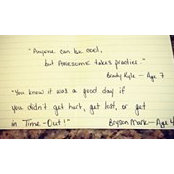 "Anyone can be cool,
but AWESOME takes practice."
Brady Kyle - Age 7
"You know it was a good day if
you didn't get hurt, get lost, or get
in Time-Out!" Bryson Mark - Age 4